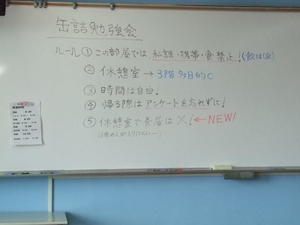 缶詰勉強会
ルール① この部屋では 私語・携帯・食 禁止！(飲はOK)
② 休憩室 → 3階 多目的C
③ 時間は自由。
④ 帰る際はアンケートを忘れずに！
⑤ 休憩室で長居は ×！← NEW!